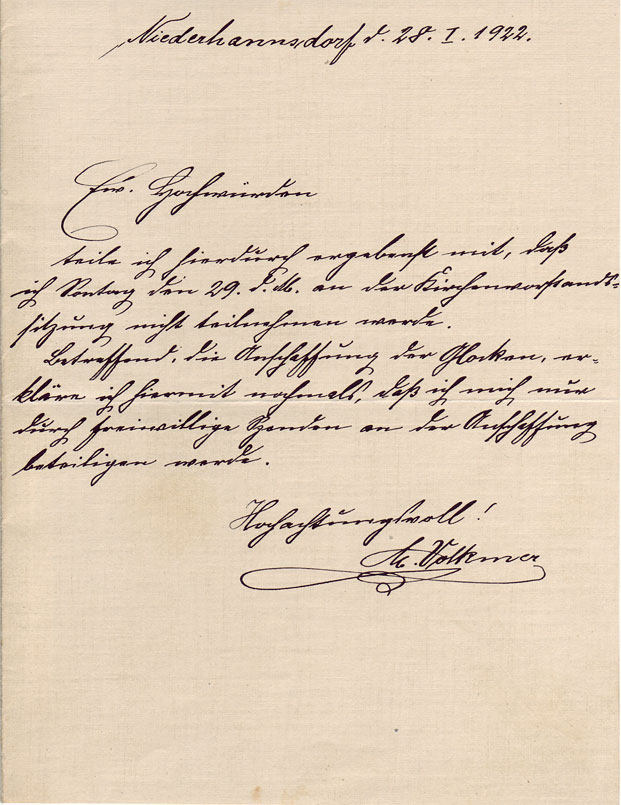 Niederhannsdorf d. 28. I. 1922.
Ew. Hochwürden
teile ich hierdurch ergebenst mit, daß
ich Sontag den 29. d. M. an der Kirchenvorstands-
sitzung nicht teilnehmen werde.
Betreffend, die Anschaffung der Glocken, er-
kläre ich hiermit nochmals, daß ich mich nur
durch freiwillige Spenden an der Anschaffung
beteiligen werde.
Hochachtungsvoll!
A. Volkmer